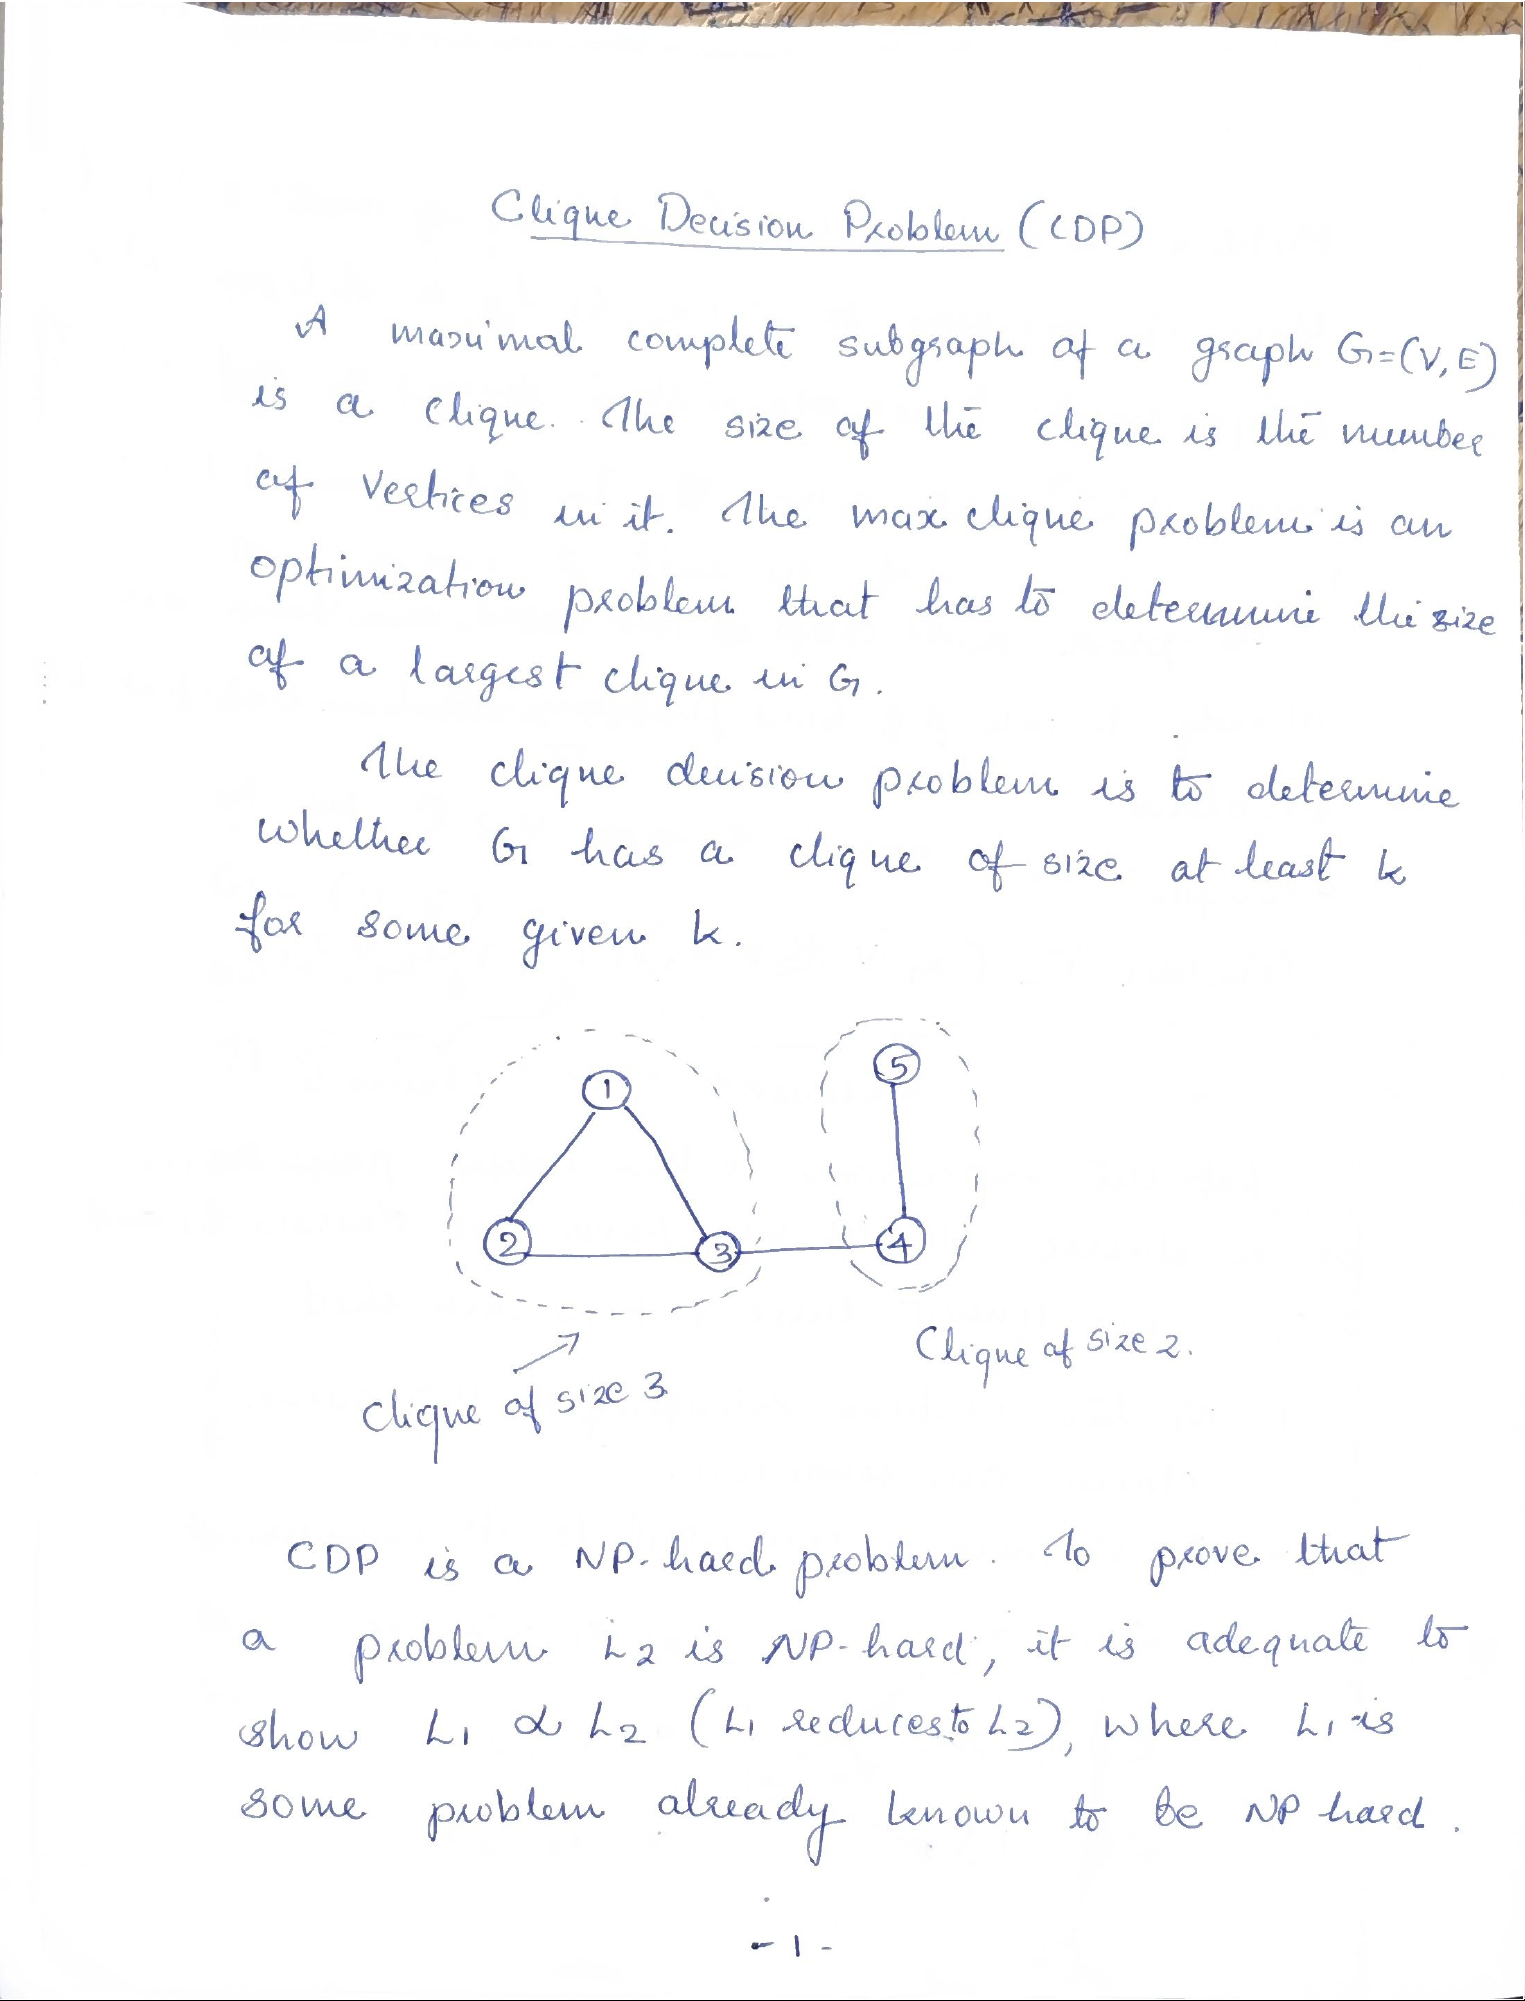 Clique Decision Problem (CDP)
A maximal complete subgraph of a graph G=(V,E)
is a clique. The size of the clique is the number
of vertices in it. The max clique problem is an
optimization problem that has to determine the size
of a largest clique in G.
The clique decision problem is to determine
whether G has a clique of size at least k
for some given k.
5
1
2
3
4
Clique of size 2.
Clique of size 3
CDP is a NP-hard problem. To prove that
a problem L2 is NP-hard, it is adequate to
show L1 α L2 (L1 reduces to L2), where L1 is
some problem already known to be NP hard.
- 1 -